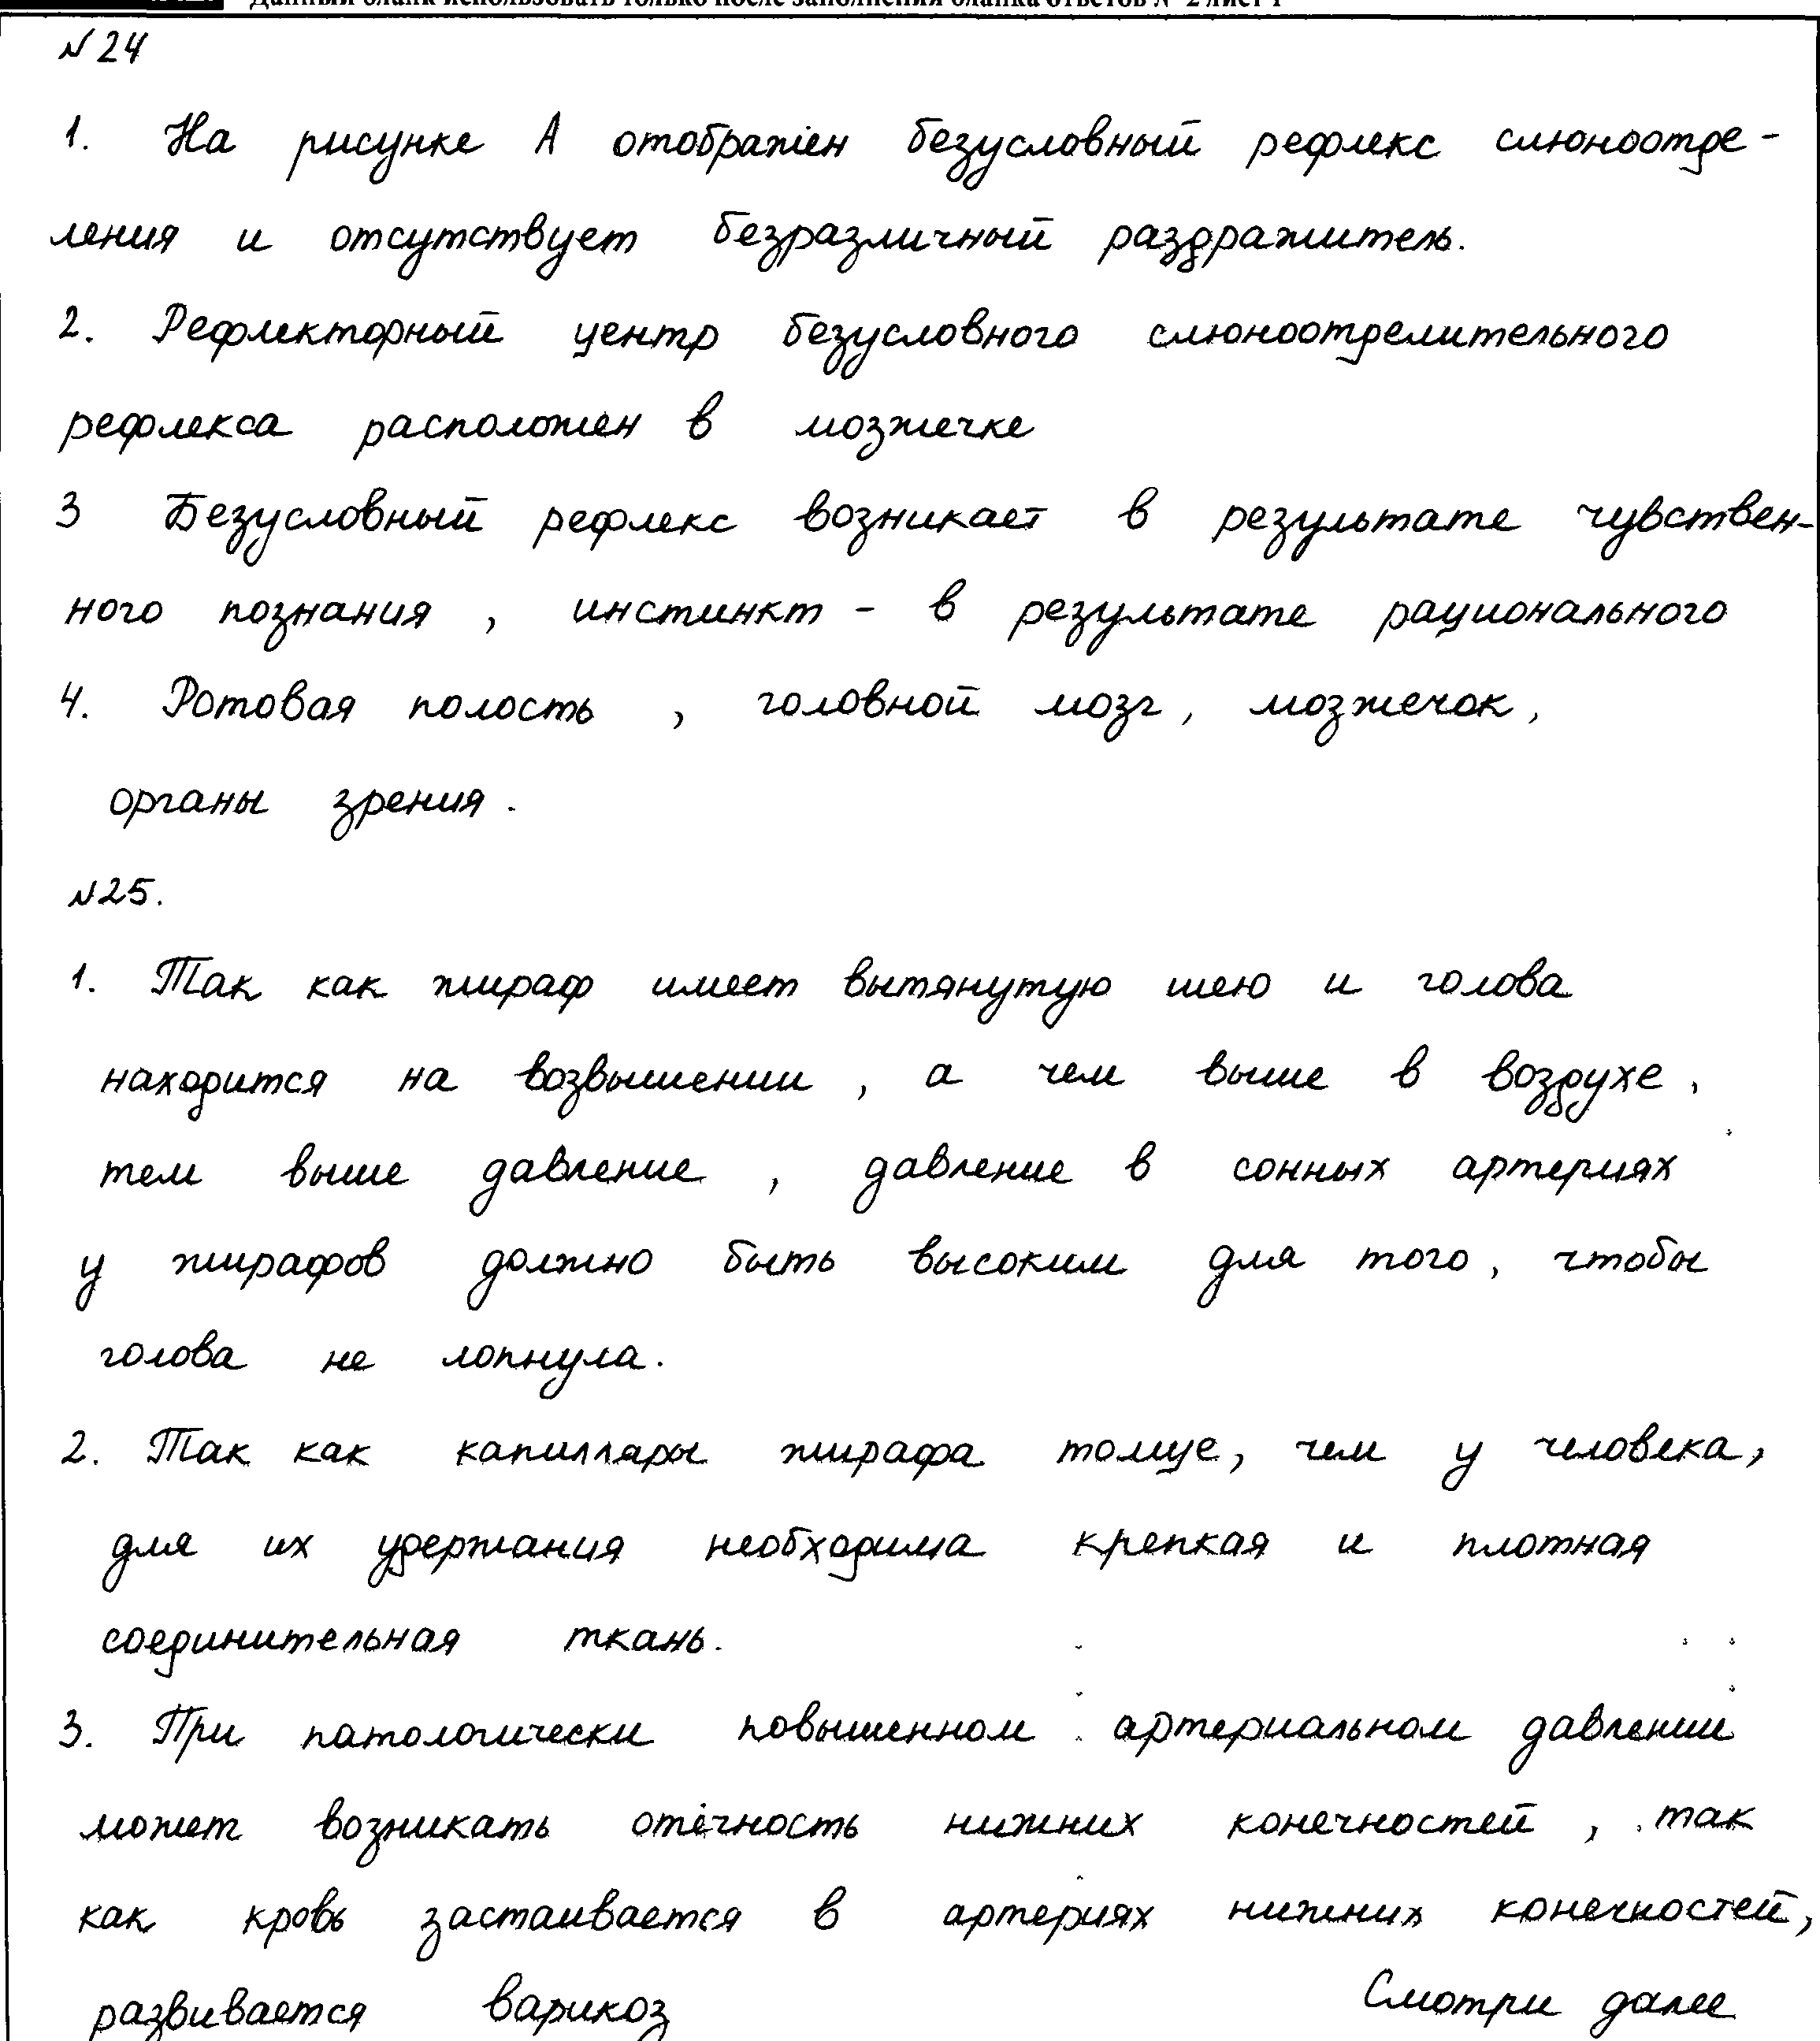 Данный бланк использовать только после заполнения бланка ответов № 2 лист 1
№ 24
1. На рисунке А отображён безусловный рефлекс слюноотде-
ления и отсутствует безразличный раздражитель.
2. Рефлекторный центр безусловного слюноотделительного
рефлекса расположен в мозжечке
3 Безусловный рефлекс возникает в результате чувствен-
ного познания, инстинкт - в результате рационального
4. Ротовая полость, головной мозг, мозжечок,
органы зрения.
№25.
1. Так как жираф имеет вытянутую шею и голова
находится на возвышении, а чем выше в воздухе,
тем выше давление, давление в сонных артериях
у жирафов должно быть высоким для того, чтобы
голова не лопнула.
2. Так как капилляры жирафа толще, чем у человека,
для их удержания необходима крепкая и плотная
соединительная ткань.
3. При патологически повышенном артериальном давлении
может возникать отёчность нижних конечностей, так
как кровь застаивается в артериях нижних конечностей,
развивается варикоз
Смотри далее